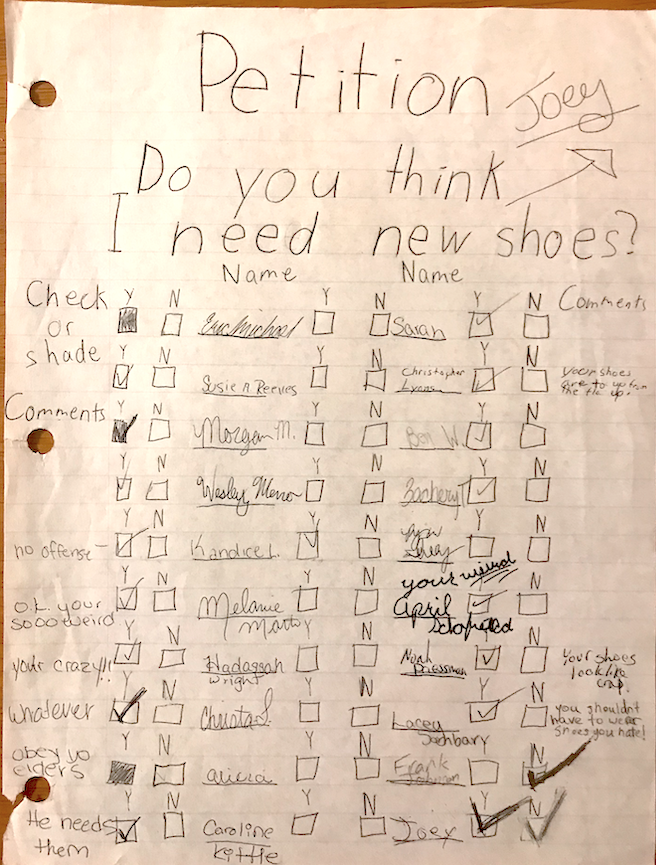 Petition Joey
Do you think
I need new shoes?
Name Name
Check or shade
Comments
Y N Y N Y N
Eric Michael Sarah
Y N Y N
Susie A Reeves Christopher Lyons your shoes are to up from the flo up!
Comments
Y N Y N Y N
Morgan M. Ben W.
Y N Y N Y N
Wesley Zachery T
Y N Y N Y N
no offense- Kandice L.
your weird
Y N Y N
o.k. your sooo weird Melanie April
Y N Y N Y N
your crazy!! Hadassah Wright Noah Your shoes look like crap.
Y N Y N Y N
whatever Christa S. Lacey you shouldn't have to wear shoes you hate!
Y N Y N
obey yo elders alicia Frank Johnson
Y N Y N Y N
He needs them Caroline Kittle Joey